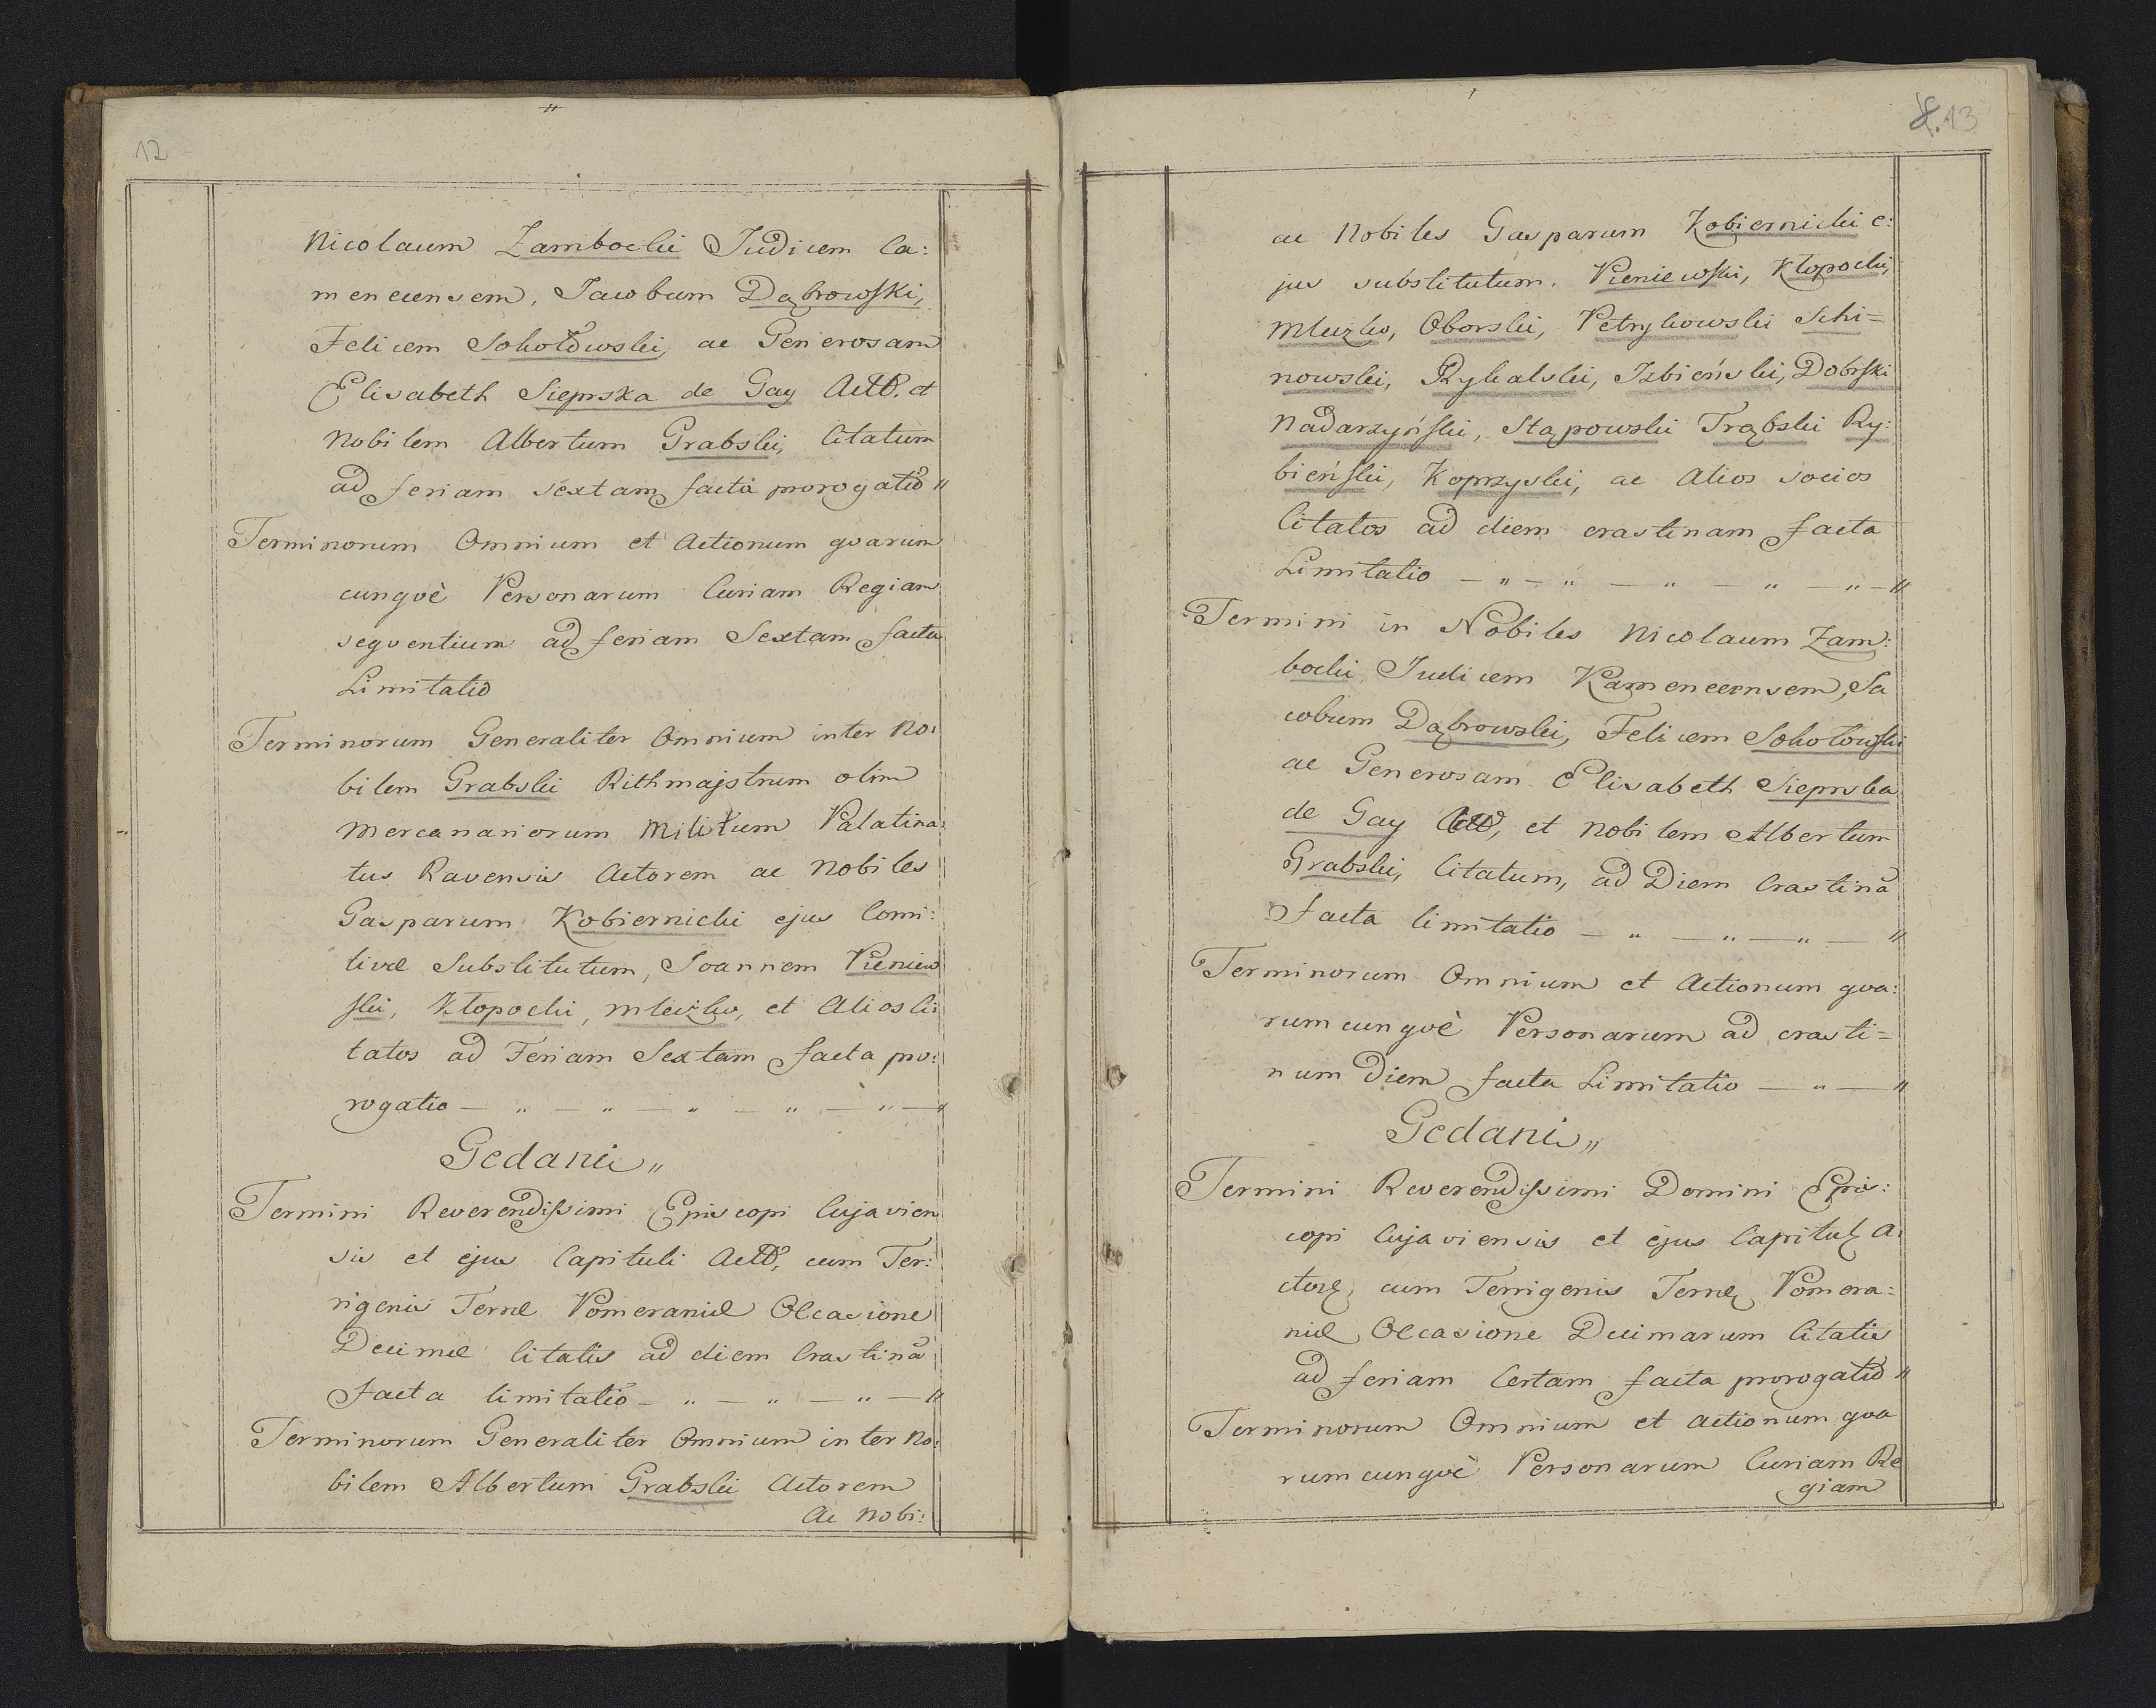 12
Nicolaum Zambocki Judicem Ca:
menecensem, Jacobum Dąbrowski,
Felicem Sokołowski, ac Generosam
Elisabeth Sieprska de Gay Act. et
Nobilem Albertum Grabski, Citatum
ad feriam sextam facta prorogatio "
Terminorum Omnium et Actionum qvarum
cunqvè Personarum Curiam Regiam
seqventium ad feriam Sextam facta
Limitatio
Terminorum Generaliter Omnium inter No:
bilem Grabski Rithmajstrum olim
Mercanariorum Militum Palatina:
tus Ravensis Actorem ac Nobiles
Gasparum Kobiernicki ejus Comi:
tivæ Substitutum, Joannem Pieniew
ski, Kłopocki, Mleczko, et Alios Ci:
tatos ad Feriam Sextam facta pro:
rogatio — " — " — " — " — " — "
Gedani "
Termini Reverendissimi Episcopi Cujavien
sis et ejus Capituli Act, cum Ter:
rigenis Terræ Pomeraniæ Occasione
Decimæ Citatis ad diem Crastinã
facta limitatio — " — " — " — "
Terminorum Generaliter Omnium inter No:
bilem Albertum Grabski Actorem
Ac Nobi:
13
ac Nobiles Gasparum Kobiernicki e:
jus substitutum. Pieniewski, Kłopocki,
Mleczko, Oborski, Petrykowski Schi=
nowski, Rykalski, Izbieński, Dobrski
Nadarzyński, Stąpowski Trąbski Ry:
bieński, Koprzyski, ac Alios socios
Citatos ad diem crastinam facta
Limitatio — " — " — " — " — " — "
Termini in Nobiles Nicolaum Zam:
bocki Judicem Kamenecensem, Ja
cobum Dąbrowski, Felicem Sokołowski
ac Generosam Elisabeth Sieprska
de Gay Act, et Nobilem Albertum
Grabski, Citatum, ad Diem Crastinã
facta limitatio — " — " — " — "
Terminorum Omnium et Actionum qva:
rumcunqvè Personarum ad crasti=
num Diem facta Limitatio — " — "
Gedani "
Termini Reverendissimi Domini Epis:
copi Cujaviensis et ejus Capitul A:
ctor, cum Terrigenis Terræ Pomera:
niæ Occasione Decimarum Citatis
ad feriam Certam facta prorogatio "
Terminorum Omnium et Actionum qva
rumcunqvè Personarum Curiam Re
giam